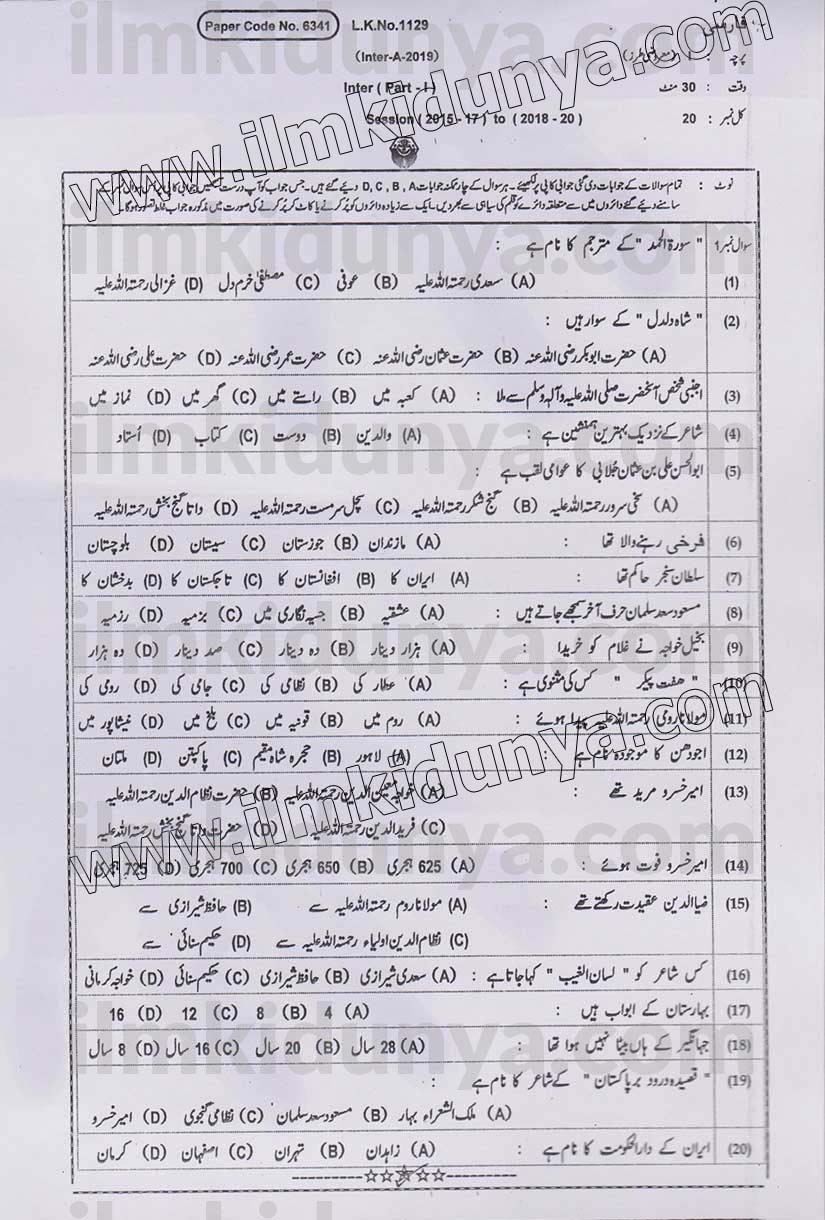 Paper Code No. 6341
L.K.No.1129
فارسی
(Inter-A-2019)
پرچہ : I (معروضی طرز)
Inter ( Part - I )
وقت : 30 منٹ
Session ( 2015 - 17 ) to ( 2018 - 20 )
کل نمبر : 20
نوٹ : تمام سوالات کے جوابات دی گئی جوابی کاپی پر لکھیئے ۔ ہر سوال کے چار ممکنہ جوابات D, C, B, A دیے گئے ہیں ۔ جس جواب کو آپ درست سمجھیں جوابی کاپی پر اس سوال نمبر کے
سامنے دیے گئے دائروں میں سے متعلقہ دائرے کو قلم کی سیاہی سے بھر دیں ۔ ایک سے زیادہ دائروں کو پُر کرنے یا کاٹ کر پُر کرنے کی صورت میں مذکورہ جواب غلط تصور ہو گا ۔
سوال نمبر 1
(1) " سورۃ الحمد " کے مترجم کا نام ہے :
(A) سعدی رحمتہ اللہ علیہ (B) عوفی (C) مصطفیٰ خرم دل (D) غزالی رحمتہ اللہ علیہ
(2) " شاہ دلدل " کے سوار ہیں :
(A) حضرت ابوبکر رضی اللہ عنہ (B) حضرت عثمان رضی اللہ عنہ (C) حضرت عمر رضی اللہ عنہ (D) حضرت علی رضی اللہ عنہ
(3) اجنبی شخص آنحضرت صلی اللہ علیہ و آلہ وسلم سے ملا : (A) کعبہ میں (B) راستے میں (C) گھر میں (D) نماز میں
(4) شاعر کے نزدیک بہترین ہمنشین ہے : (A) والدین (B) دوست (C) کتاب (D) اُستاد
(5) ابوالحسن علی بن عثمان جُلابی کا عوامی لقب ہے
(A) سخی سرور رحمتہ اللہ علیہ (B) گنج شکر رحمتہ اللہ علیہ (C) سچل سرمست رحمتہ اللہ علیہ (D) داتا گنج بخش رحمتہ اللہ علیہ
(6) فرخی رہنے والا تھا : (A) مازندان (B) جوزستان (C) سیستان (D) بلوچستان
(7) سلطان سنجر حاکم تھا : (A) ایران کا (B) افغانستان کا (C) تاجکستان کا (D) بدخشان کا
(8) مسعود سعد سلمان حرف آخر سمجھے جاتے ہیں : (A) عشقیہ (B) حبسیہ نگاری میں (C) بزمیہ (D) رزمیہ
(9) بخیل خواجہ نے غلام کو خریدا : (A) ہزار دینار (B) دہ دینار (C) صد دینار (D) دہ ہزار
(10) " ھفت پیکر " کس کی مثنوی ہے : (A) عطار کی (B) نظامی کی (C) جامی کی (D) رومی کی
(11) مولانا رومی رحمتہ اللہ علیہ پیدا ہوئے : (A) روم میں (B) قونیہ میں (C) بلخ میں (D) نیشاپور میں
(12) اجودھن کا موجودہ نام ہے : (A) لاہور (B) حجرہ شاہ مقیم (C) پاکپتن (D) ملتان
(13) امیر خسرو مرید تھے : (A) خواجہ معین الدین رحمتہ اللہ علیہ (B) حضرت نظام الدین رحمتہ اللہ علیہ
(C) فرید الدین رحمتہ اللہ علیہ (D) حضرت داتا گنج بخش رحمتہ اللہ علیہ
(14) امیر خسرو فوت ہوئے : (A) 625 ہجری (B) 650 ہجری (C) 700 ہجری (D) 725 ہجری
(15) ضیاالدین عقیدت رکھتے تھے : (A) مولانا روم رحمتہ اللہ علیہ سے (B) حافظ شیرازی سے
(C) نظام الدین اولیاء رحمتہ اللہ علیہ سے (D) حکیم سنائی سے
(16) کس شاعر کو " لسان الغیب " کہا جاتا ہے : (A) سعدی شیرازی (B) حافظ شیرازی (C) حکیم سنائی (D) خواجہ کرمانی
(17) بہارستان کے ابواب ہیں : (A) 4 (B) 8 (C) 12 (D) 16
(18) جہانگیر کے ہاں بیٹا نہیں ہوا تھا : (A) 28 سال (B) 20 سال (C) 16 سال (D) 8 سال
(19) " قصیدہ درود بر پاکستان " کے شاعر کا نام ہے :
(A) ملک الشعراء بہار (B) مسعود سعد سلمان (C) نظامی گنجوی (D) امیر خسرو
(20) ایران کے دارالحکومت کا نام ہے : (A) زاہدان (B) تہران (C) اصفہان (D) کرمان
www.ilmkidunya.com
www.ilmkidunya.com
ilmkidunya.com